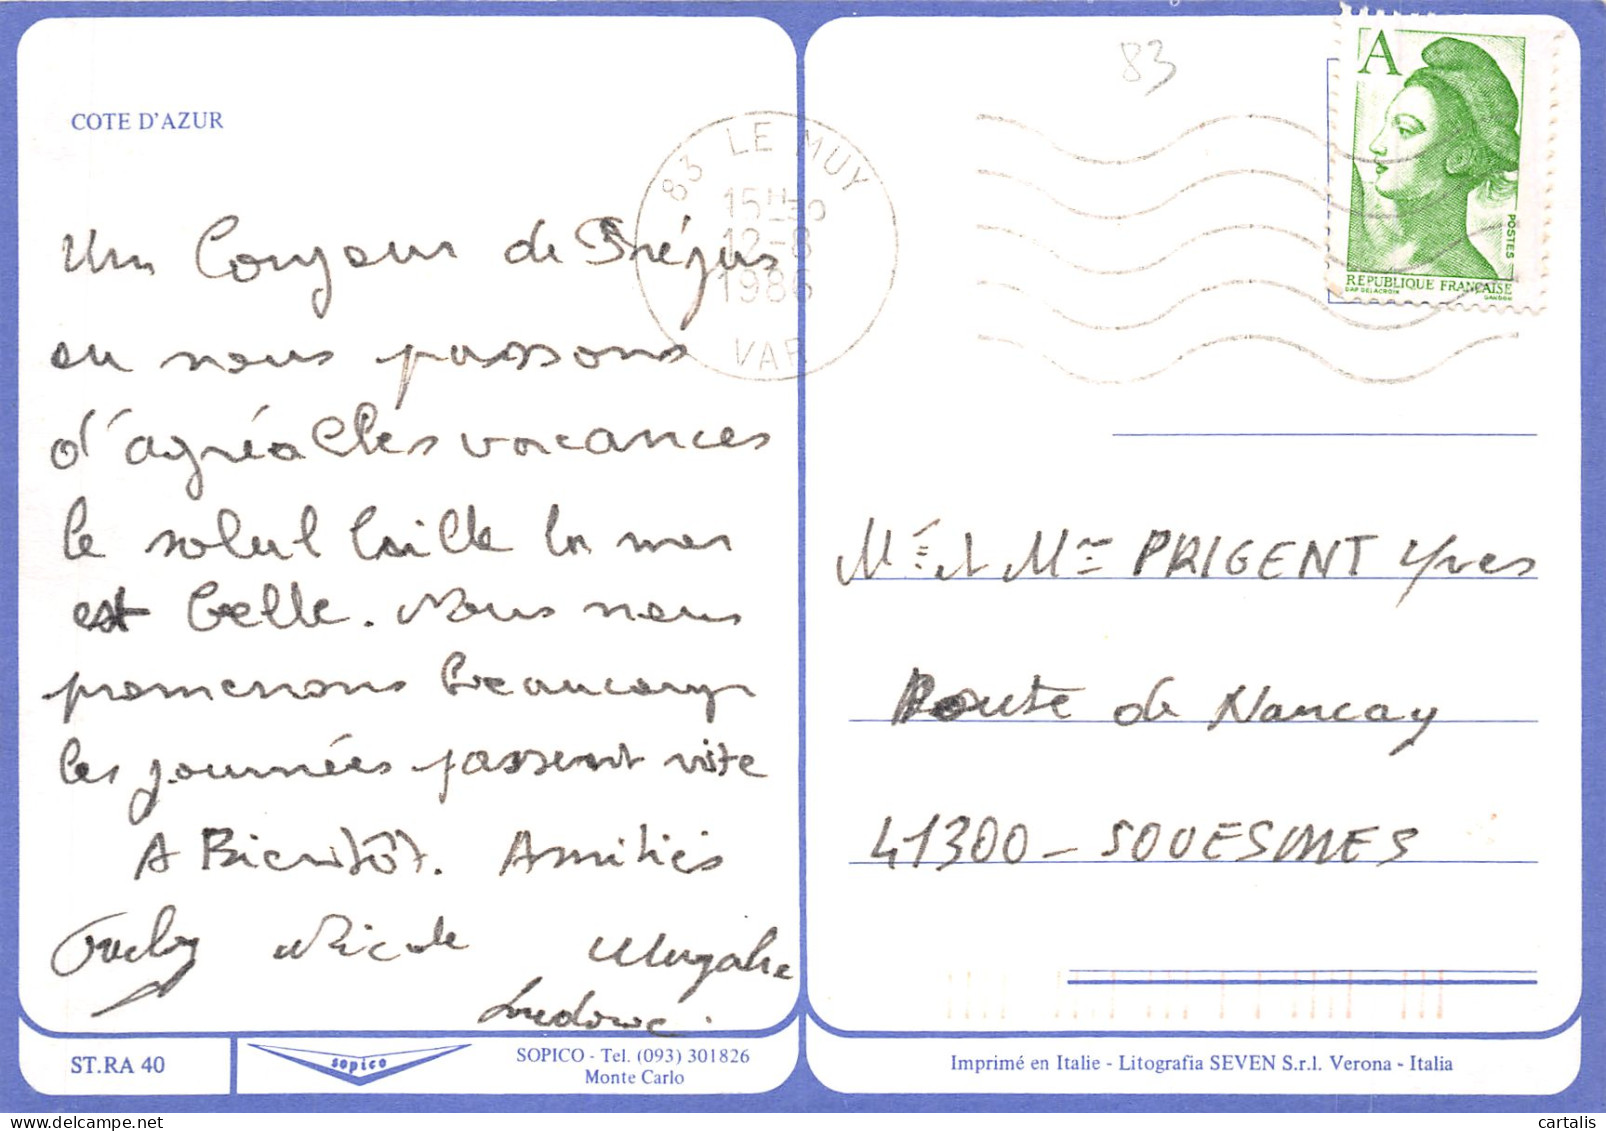 COTE D'AZUR
Un Bonjour de Fréjus
ou nous passons
d'agréables vacances
le soleil brille la mer
est belle. Nous nous
promenons beaucoup
les journées passent vite
A Bientôt. Amitiés
Nicole
Ludovic.
ST.RA 40
sopico
SOPICO - Tel. (093) 301826
Monte Carlo
83
83 LE MUY
15H30
12-8
1986
VAR
A
POSTES
REPUBLIQUE FRANÇAISE
DAP DELACROIX
GANDON
Mr & Mme PRIGENT Yves
Route de Nancay
41300 - SOUESMES
Imprimé en Italie - Litografia SEVEN S.r.l. Verona - Italia
cartalis